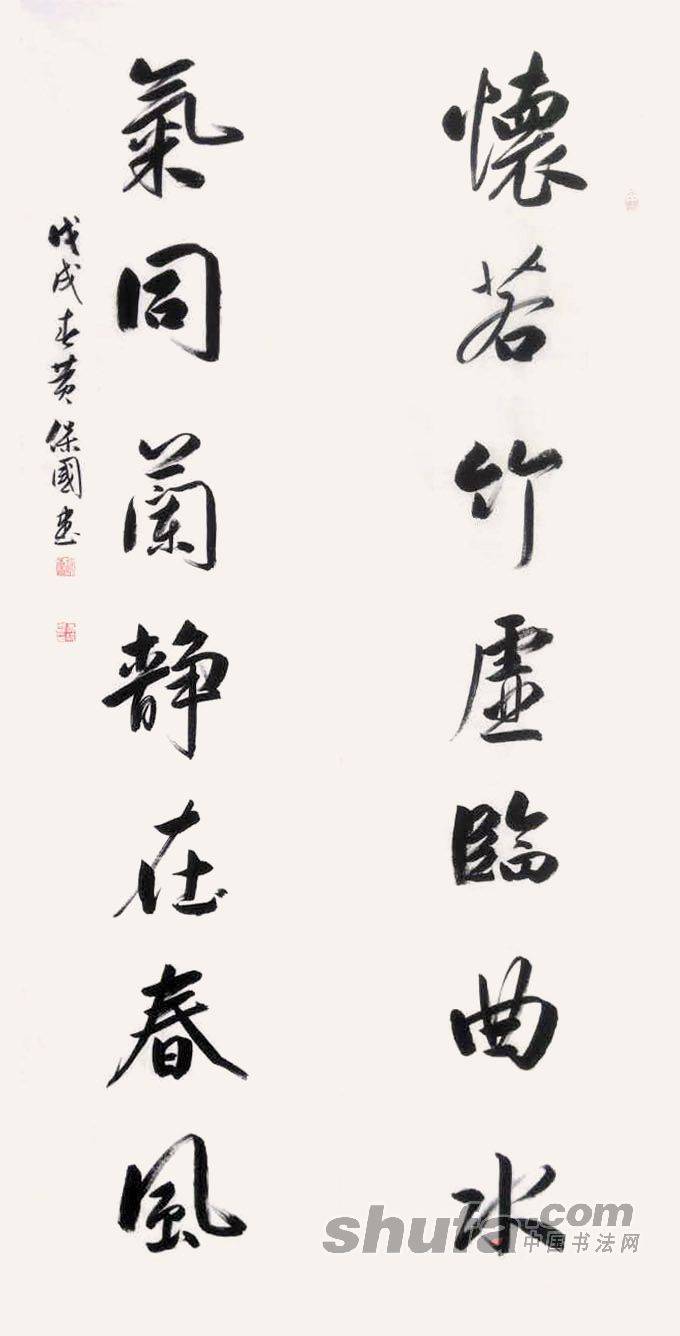 懷若竹虛臨曲水
氣同蘭靜在春風
戊戌春黄保國書
shufa.com
中国书法网